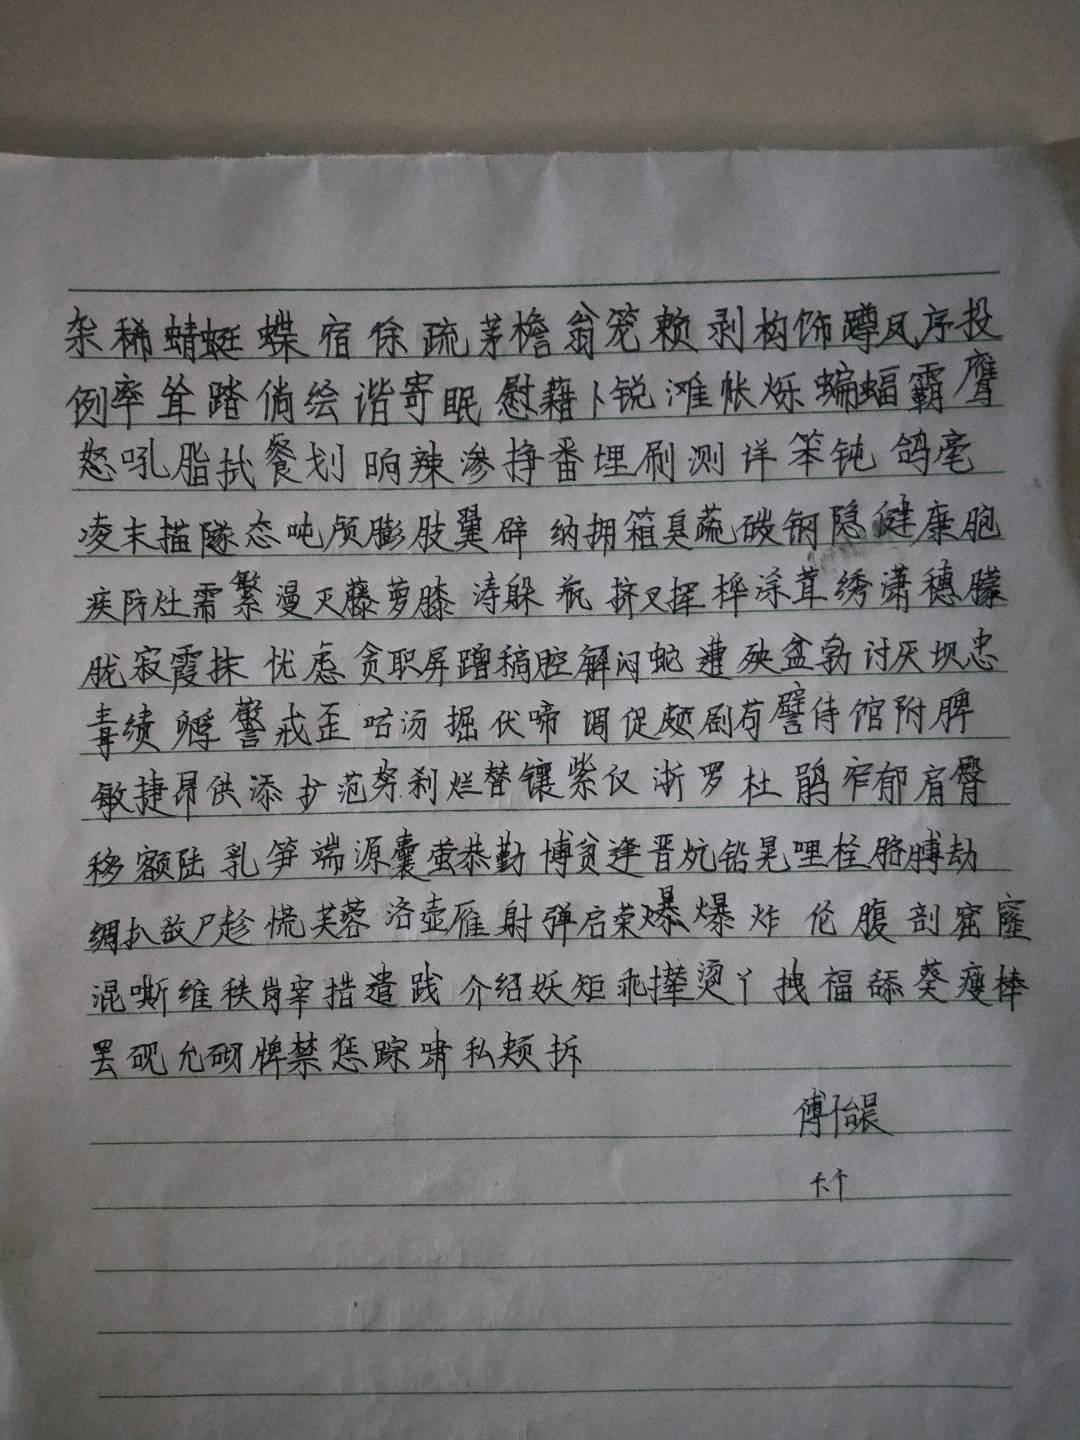 杂稀蜻蜓蝶宿徐疏茅檐翁笼赖剥构饰蹲凤序投
例率耸踏倘绘谐寄眠慰藉卜锐滩帐烁蝙蝠霸鹰
怒吼脂拭餐划晌辣渗挣番埋刷测详笨钝鸽毫
凌末描隧态吨颅膨肢翼辟纳拥箱臭蔬碳钢隐健康胞
疾防灶需繁漫灭藤萝膝涛躲瓶挤叉挥桦涂茸绣潇穗朦
胧寂霞抹忧虑贪职屏蹭稿腔解闷蛇遭殃盆勃讨厌坝忠
毒绩孵警戒歪咕汤掘伏啼调促颇剧苟譬侍馆附脾
敏捷昂供添扩范努刹烂替镶紫仅浙罗杜鹃窄郁肩臀
移额陆乳笋端源囊萤恭勤博贫逢晋炕铅晃哩栓胳膊劫
绸扒敌尸趁慌芙蓉洛壶雁射弹启荣爆爆炸伦腹剖窟窿
混嘶维秩岗宰措遣践介绍妖矩乖撵烫丫拽福舔葵瘦棒
罢砚允砌牌禁惩踪啸私颊拆
傅怡晨